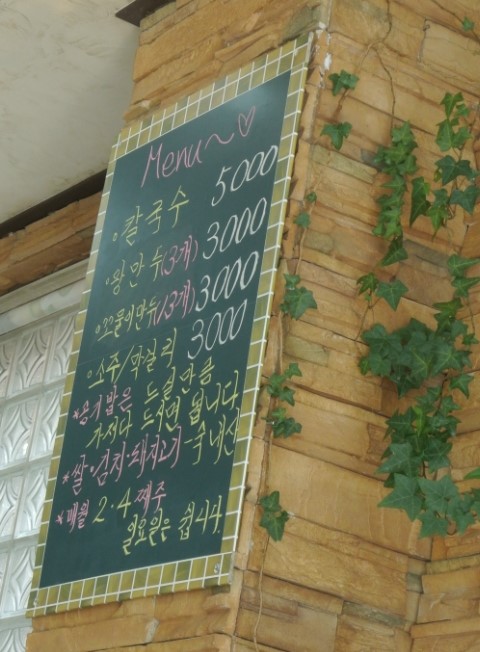 Menu~♡
◦칼국수 5000
◦왕만두(3개) 3000
◦꼬물이만두(13개) 3000
◦소주/막걸리 3000
*공기밥은 드실만큼
가져다 드시면 됩니다
*쌀·김치·돼지고기-국내산
*매월 2·4째주
일요일은 쉽니다.